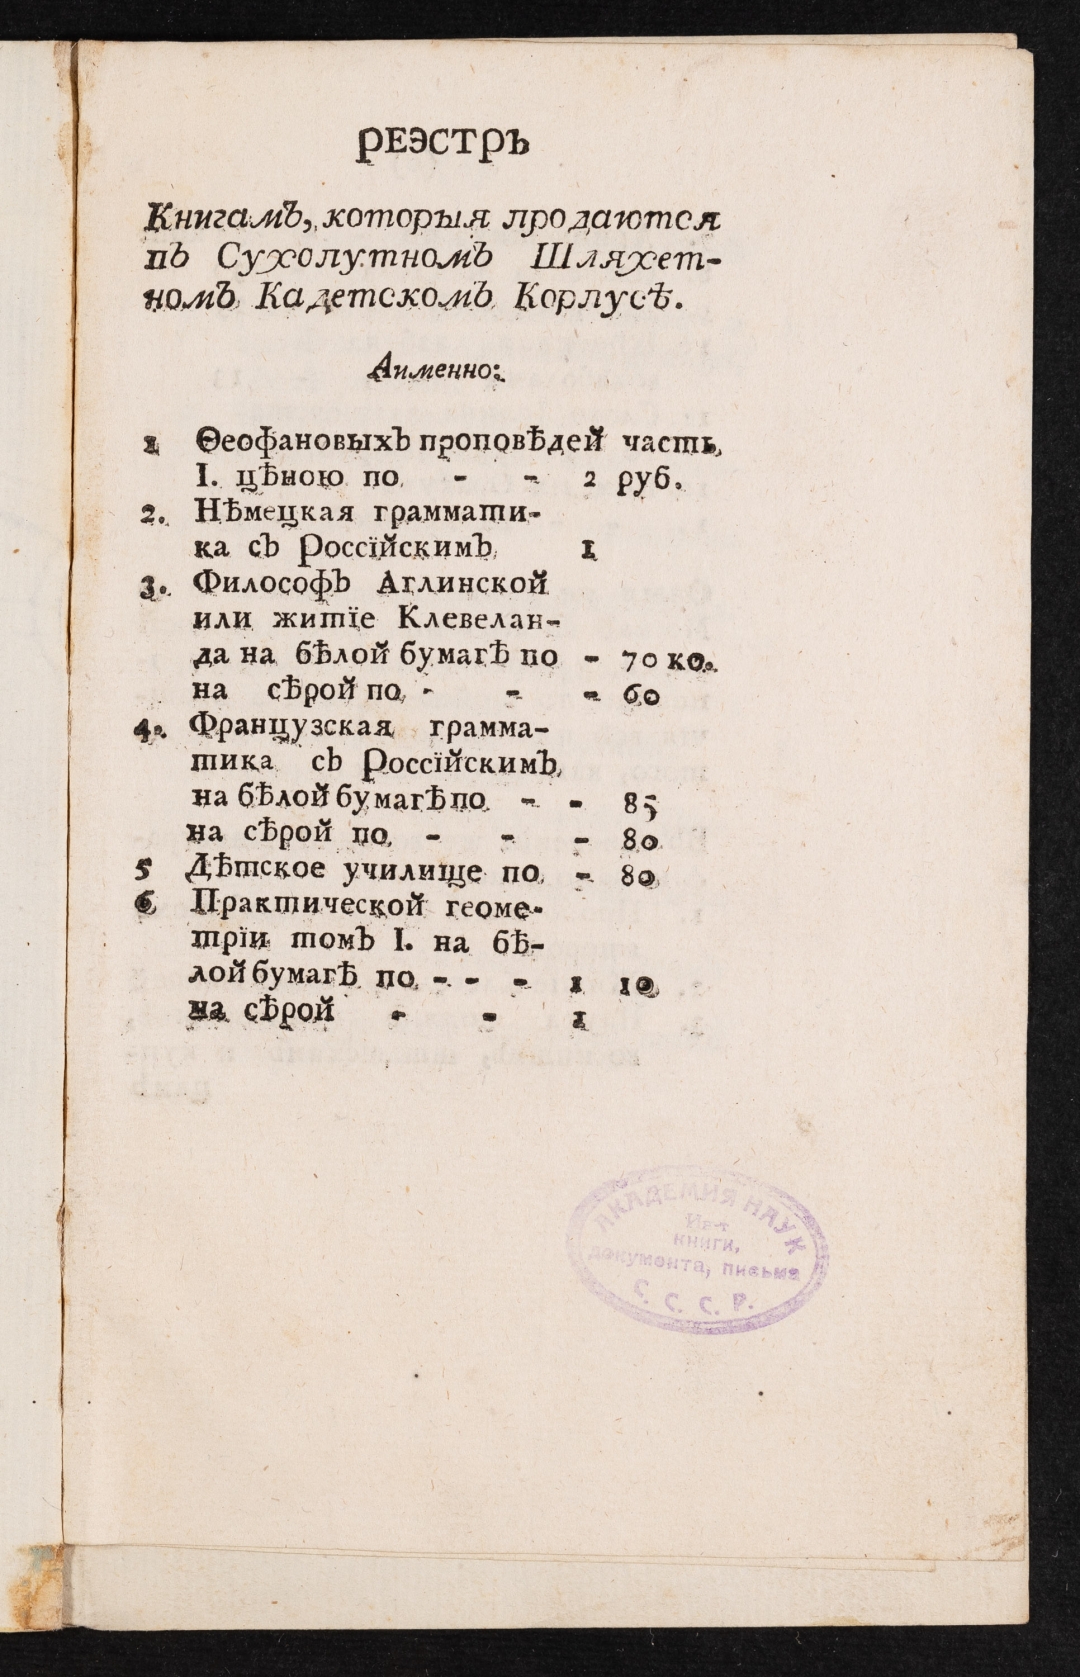 РЕЭСТРЪ
Книгамъ, которыя продаются
въ Сухопутномъ Шляхет-
номъ Кадетскомъ Корпусѣ.
Аименно:
1 Ѳеофановыхъ проповѣдей часть
I. цѣною по - - 2 руб.
2. Нѣмецкая граммати-
ка съ Россїйскимъ 1
3. Философъ Аглинской
или житїе Клевелан-
да на бѣлой бумагѣ по - 70 ко.
на сѣрой по - - - 60
4. Французская грамма-
тика съ Россїйскимъ
на бѣлой бумагѣ по - - 85
на сѣрой по - - - 80
5 Дѣтское училище по - 80
6 Практической геоме-
трїи томъ I. на бѣ-
лой бумагѣ по - - - 1 10
на сѣрой - - 1
АКАДЕМИЯ НАУК
Ин-т
книги,
документа, письма
С. С. С. Р.